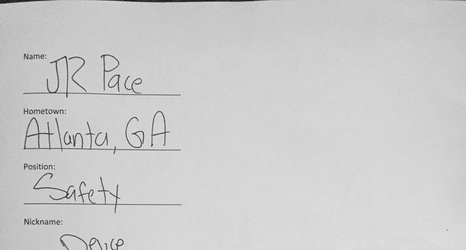 Name:
JR Pace
Hometown:
Atlanta, GA
Position:
Safety
Nickname: